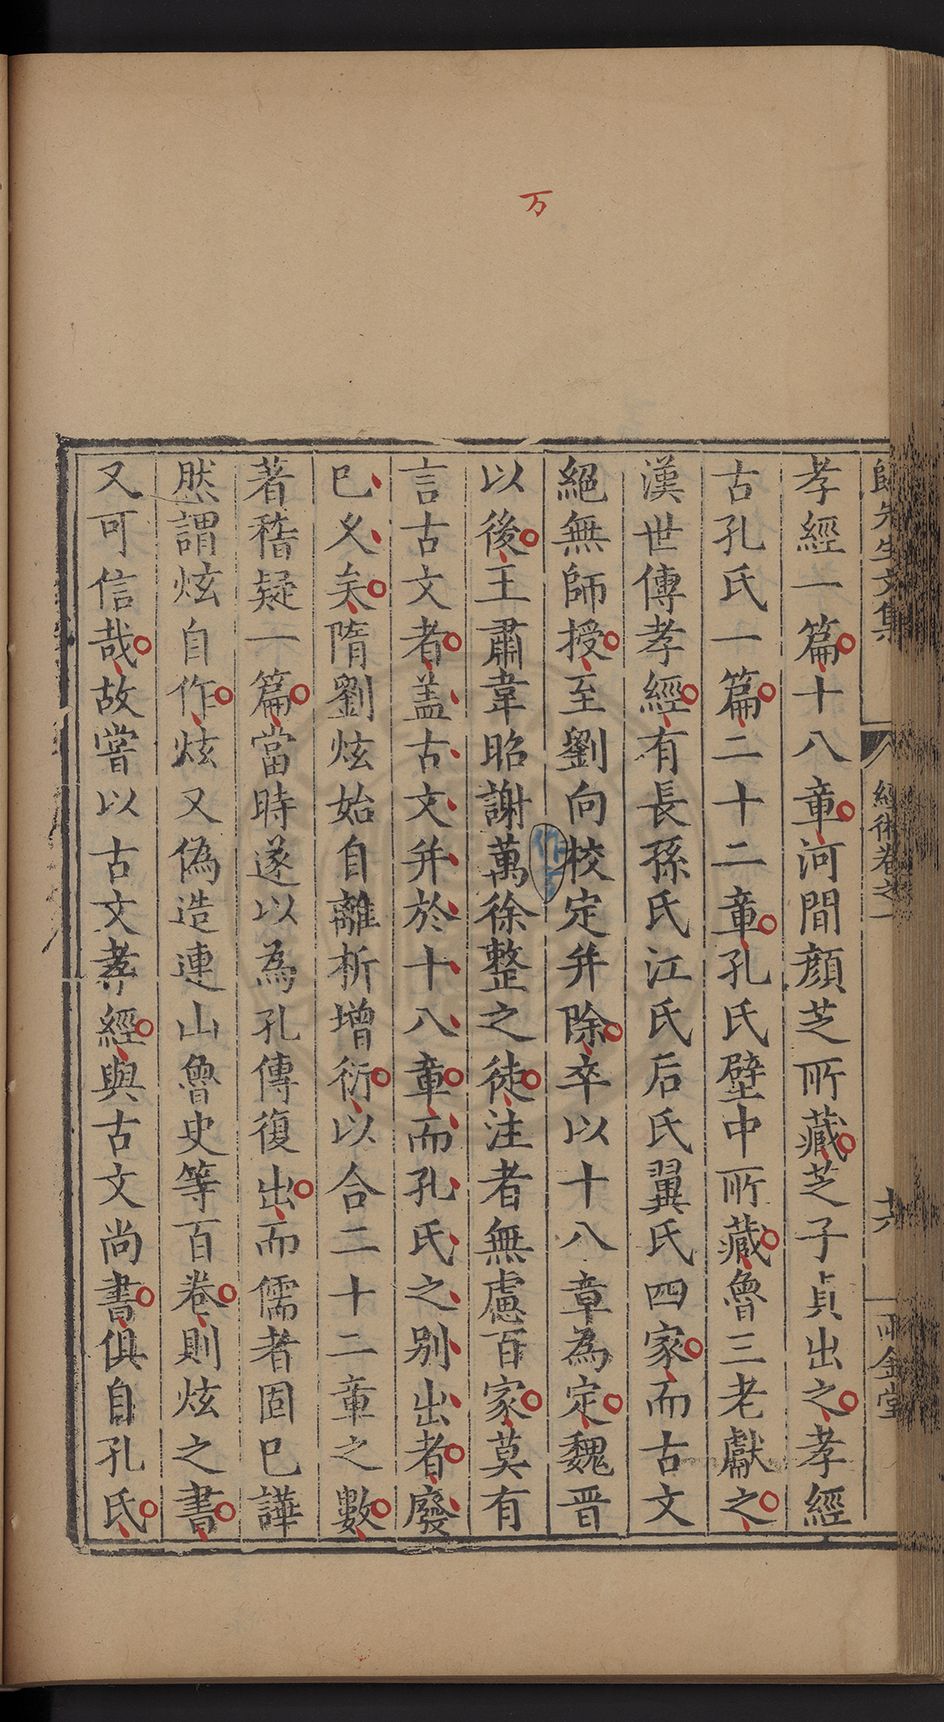 万
歸先生文集
經術卷之一
共
兩金堂
孝經一篇十八章河間顏芝所藏芝子貞出之孝經
古孔氏一篇二十二章孔氏壁中所藏魯三老獻之
漢世傳孝經有長孫氏江氏后氏翼氏四家而古文
絕無師授至劉向校定并除卒以十八章為定魏晉
以後王肅韋昭謝萬徐整之徒注者無慮百家莫有
言古文者盖古文并於十八章而孔氏之別出者廢
已乆矣隋劉炫始自離析增衍以合二十二章之數
著稽疑一篇當時遂以為孔傳復出而儒者固已譁
然謂炫自作炫又偽造連山魯史等百卷則炫之書
又可信哉故嘗以古文孝經與古文尚書俱自孔氏
作